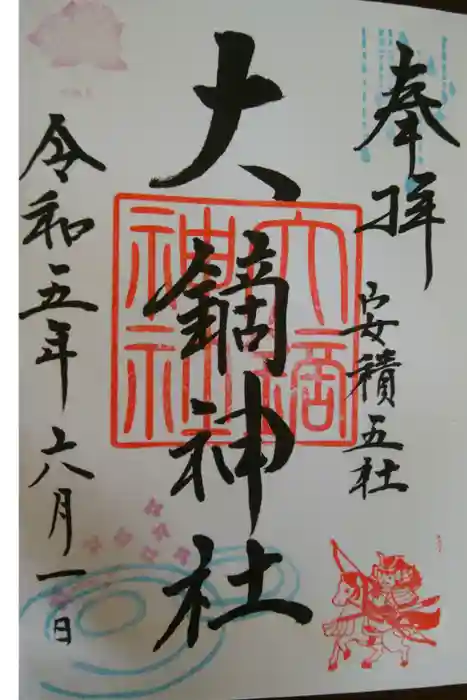 奉拝
安積五社
大鏑神社
大鏑神社
令和五年六月一日